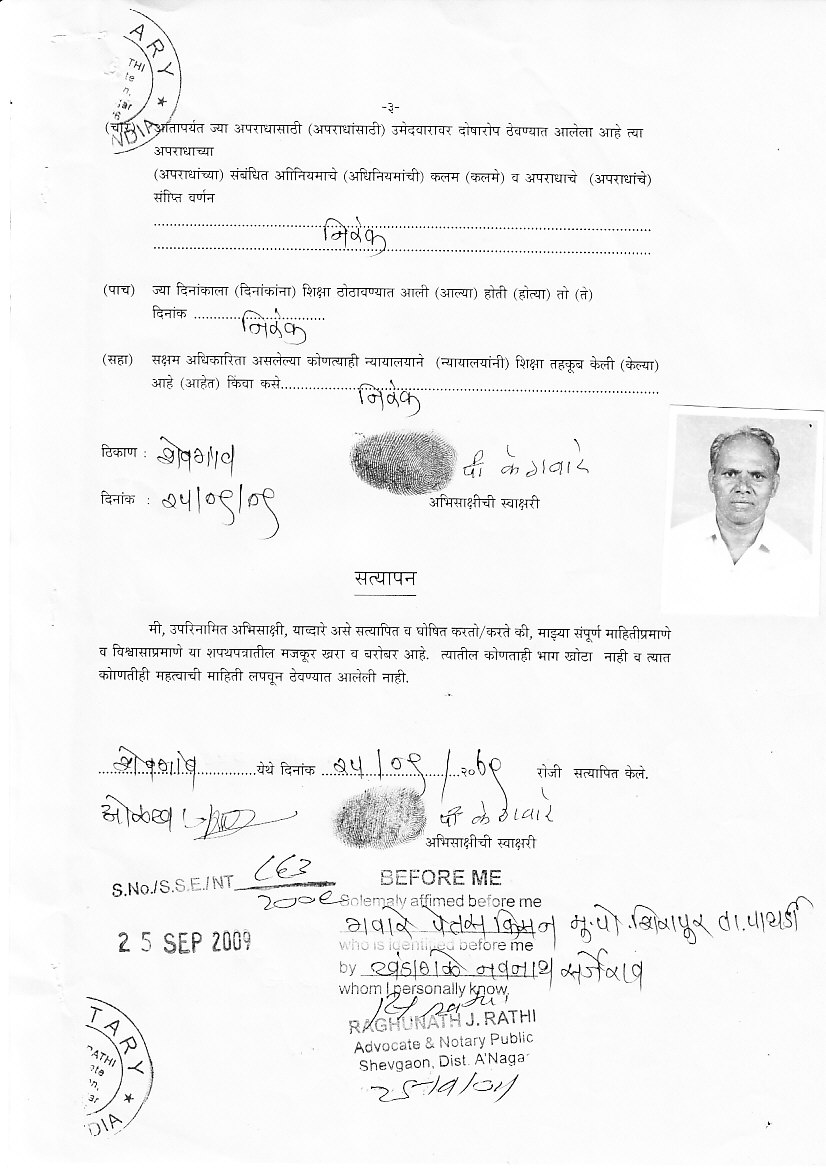 ARY
THI
te
n,
NDIA
-३-
(चार) आतापर्यत ज्या अपराधासाठी (अपराधांसाठी) उमेदवारावर दोषारोप ठेवण्यात आलेला आहे त्या
अपराधाच्या
(अपराधांच्या) संबंधित अीनियमाचे (अधिनियमांची) कलम (कलमे) व अपराधाचे (अपराधांचे)
संीप्ति वर्णन
निरंक
(पाच) ज्या दिनांकाला (दिनांकांना) शिक्षा ठोठावण्यात आली (आल्या) होती (होत्या) तो (ते)
दिनांक ........................... निरंक
(सहा) सक्षम अधिकारिता असलेल्या कोणत्याही न्यायालयाने (न्यायालयांनी) शिक्षा तहकूब केली (केल्या)
आहे (आहेत) किंवा कसे........................ निरंक
ठिकाण : शेवगाव
पी के गवारे
दिनांक : २५/०९/०९
अभिसाक्षीची स्वाक्षरी
सत्यापन
मी, उपरिनामित अभिसाक्षी, याव्दारे असे सत्यापित व घोषित करतो/करते की, माझ्या संपूर्ण माहितीप्रमाणे
व विश्वासाप्रमाणे या शपथपत्रातील मजकूर खरा व बरोबर आहे. त्यातील कोणताही भाग खोटा नाही व त्यात
कोाणतीही महत्वाची माहिती लपवून ठेवण्यात आलेली नाही.
शेवगाव येथे दिनांक २५/०९/२००९ रोजी सत्यापित केले.
ओळख
पी के गवारे
अभिसाक्षीची स्वाक्षरी
S.No./S.S.E./NT ८६३
२००९
BEFORE ME
Solemaly affimed before me
गवारे पेत्रस किसन मु.पो. शिरापूर ता. पाथर्डी
25 SEP 2009
who is identified before me
by नवनाथ सर्जेराव
whom I personally know,
RAGHUNATH J. RATHI
Advocate & Notary Public
Shevgaon, Dist. A'Nagar
TARY
RATHI
ate
NDIA